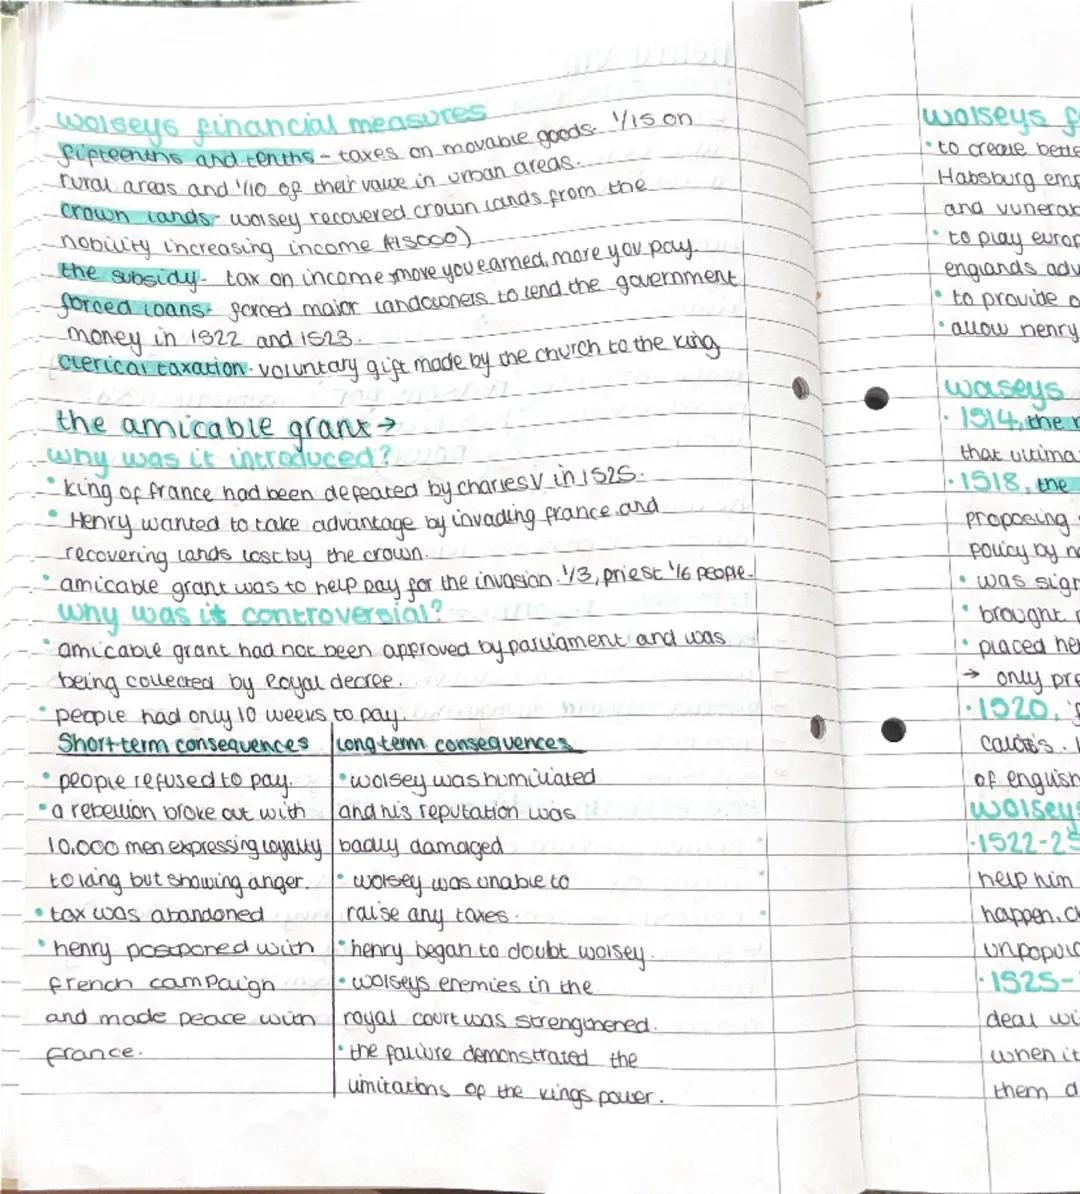 wolseys financial measures
fifteenths and tenths - taxes on movable goods. 1/15 on
rural areas and 1/10 of their value in urban areas.
crown lands - wolsey recovered crown lands from the
nobility increasing income (£15000)
the subsidy - tax on income, move you earned, more you pay.
forced loans - forced major landowners to lend the government
money in 1522 and 1523.
clerical taxation - voluntary gift made by the church to the king
the amicable grant →
why was it introduced?
• king of france had been defeated by charles V in 1525.
• Henry wanted to take advantage by invading france and
recovering lands lost by the crown.
• amicable grant was to help pay for the invasion. 1/3, priest 1/6 people.
why was it controversial?
• amicable grant had not been approved by parliament and was
being collected by Royal decree.
• people had only 10 weeks to pay.
Short term consequences
• people refused to pay.
• a rebellion broke out with
10,000 men expressing loyalty
to king but showing anger.
• tax was abandoned
• henry postponed with
french campaign
and made peace with
france.
long term consequences
• wolsey was humiliated
and his reputation was
badly damaged
• wolsey was unable to
raise any taxes.
• henry began to doubt wolsey.
• wolseys enemies in the
royal court was strengthened.
• the failure demonstrated the
limitations of the kings power.
wolseys f
• to create bette
Habsburg emp
and vunerab
• to play europ
englands adv
• to provide o
• allow henry
wolseys
• 1514, the
that ultima
• 1518, the
proposing
policy by
• was sign
• brought
• placed he
→ only pre
• 1520,
calais.
of english
wolseys
• 1522-25
help him
happen.
unpopul
• 1525-
deal wi
when it
them d